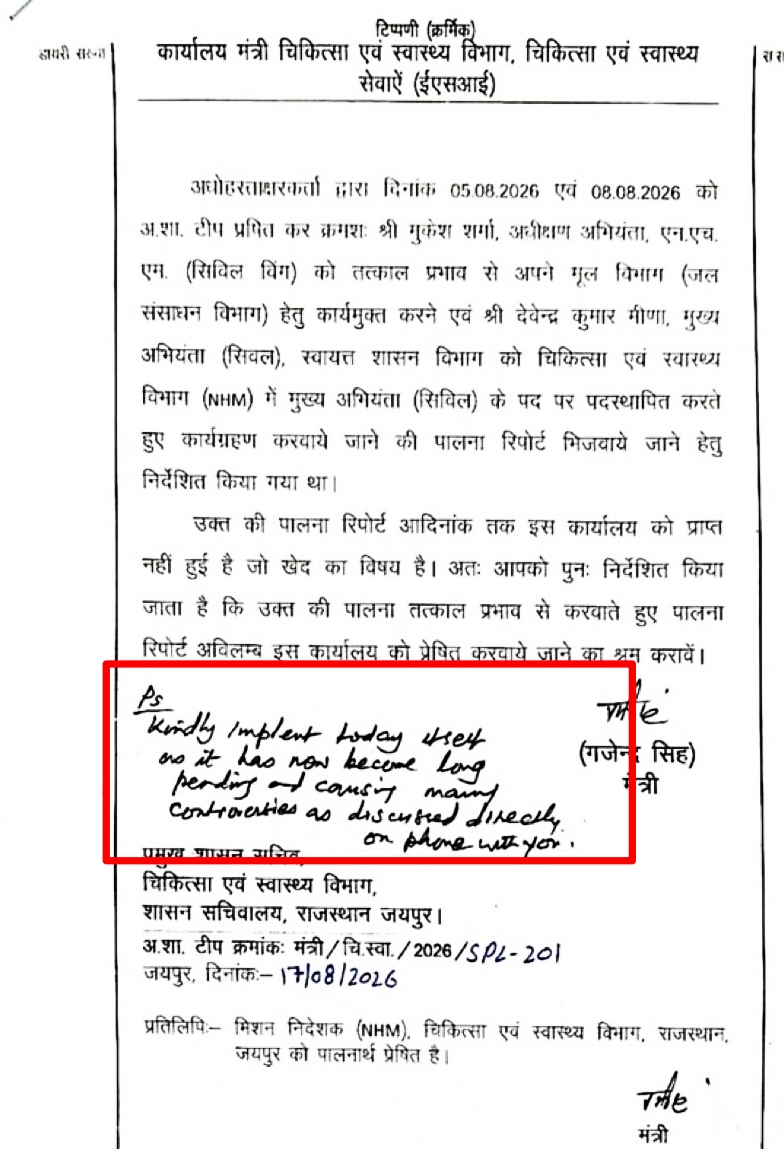 टिप्पणी (क्रर्मिक)
कार्यालय मंत्री चिकित्सा एवं स्वास्थ्य विभाग, चिकित्सा एवं स्वास्थ्य
सेवाऐं (ईएसआई)
डायरी
अधोहस्ताक्षरकर्ता द्वारा दिनांक 05.08.2026 एवं 08.08.2026 को
अ.शा. टीप प्रषित कर क्रमशः श्री मुकेश शर्मा, अधीक्षण अभियंता, एन.एच.
एम. (सिविल विंग) को तत्काल प्रभाव से अपने मूल विभाग (जल
संसाधन विभाग) हेतु कार्यमुक्त करने एवं श्री देवेन्द्र कुमार मीणा, मुख्य
अभियंता (सिवल), स्वायत्त शासन विभाग को चिकित्सा एवं स्वास्थ्य
विभाग (NHM) में मुख्य अभियंता (सिविल) के पद पर पदस्थापित करते
हुए कार्यग्रहण करवाये जाने की पालना रिपोर्ट भिजवाये जाने हेतु
निर्देशित किया गया था।
उक्त की पालना रिपोर्ट आदिनांक तक इस कार्यालय को प्राप्त
नहीं हुई है जो खेद का विषय है। अतः आपको पुनः निर्देशित किया
जाता है कि उक्त की पालना तत्काल प्रभाव से करवाते हुए पालना
रिपोर्ट अविलम्ब इस कार्यालय को प्रेषित करवाये जाने का श्रम करावें।
Ps
Kindly implent today itself
as it has now become long
pending and causing many
controversies as discussed directly
on phone with you.
(गजेन्द्र सिंह)
मंत्री
प्रमुख शासन सचिव,
चिकित्सा एवं स्वास्थ्य विभाग,
शासन सचिवालय, राजस्थान जयपुर।
अ.शा. टीप क्रमांकः मंत्री/चि.स्वा./2026/SPL-201
जयपुर, दिनांकः– 17/08/2026
प्रतिलिपिः– मिशन निदेशक (NHM), चिकित्सा एवं स्वास्थ्य विभाग, राजस्थान,
जयपुर को पालनार्थ प्रेषित है।
मंत्री